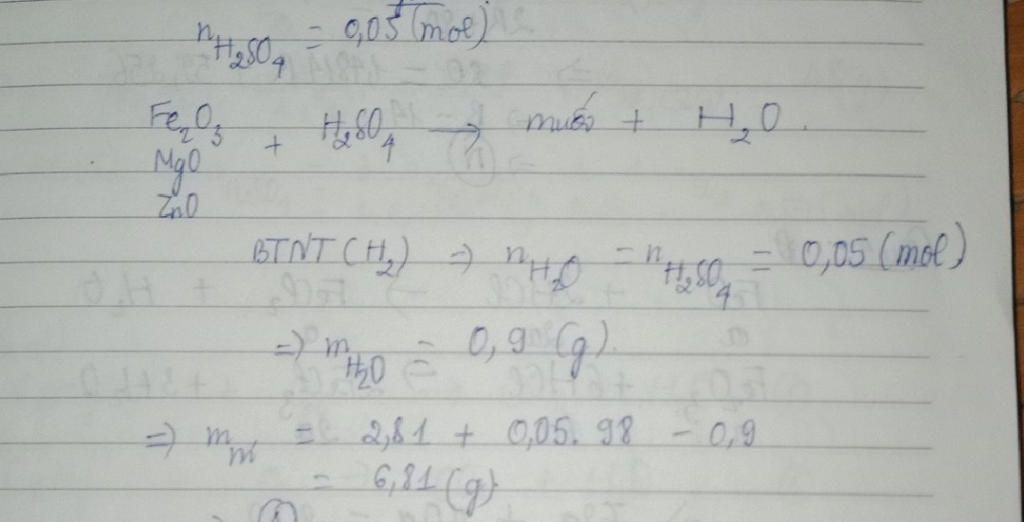 nH₂SO₄ = 0,05 (mol)
Fe₂O₃ + H₂SO₄ → muối + H₂O.
MgO
ZnO
BTNT (H₂) => nH₂O = nH₂SO₄ = 0,05 (mol)
=> mH₂O = 0,9 (g).
=> mm' = 2,81 + 0,05. 98 - 0,9
= 6,81 (g)